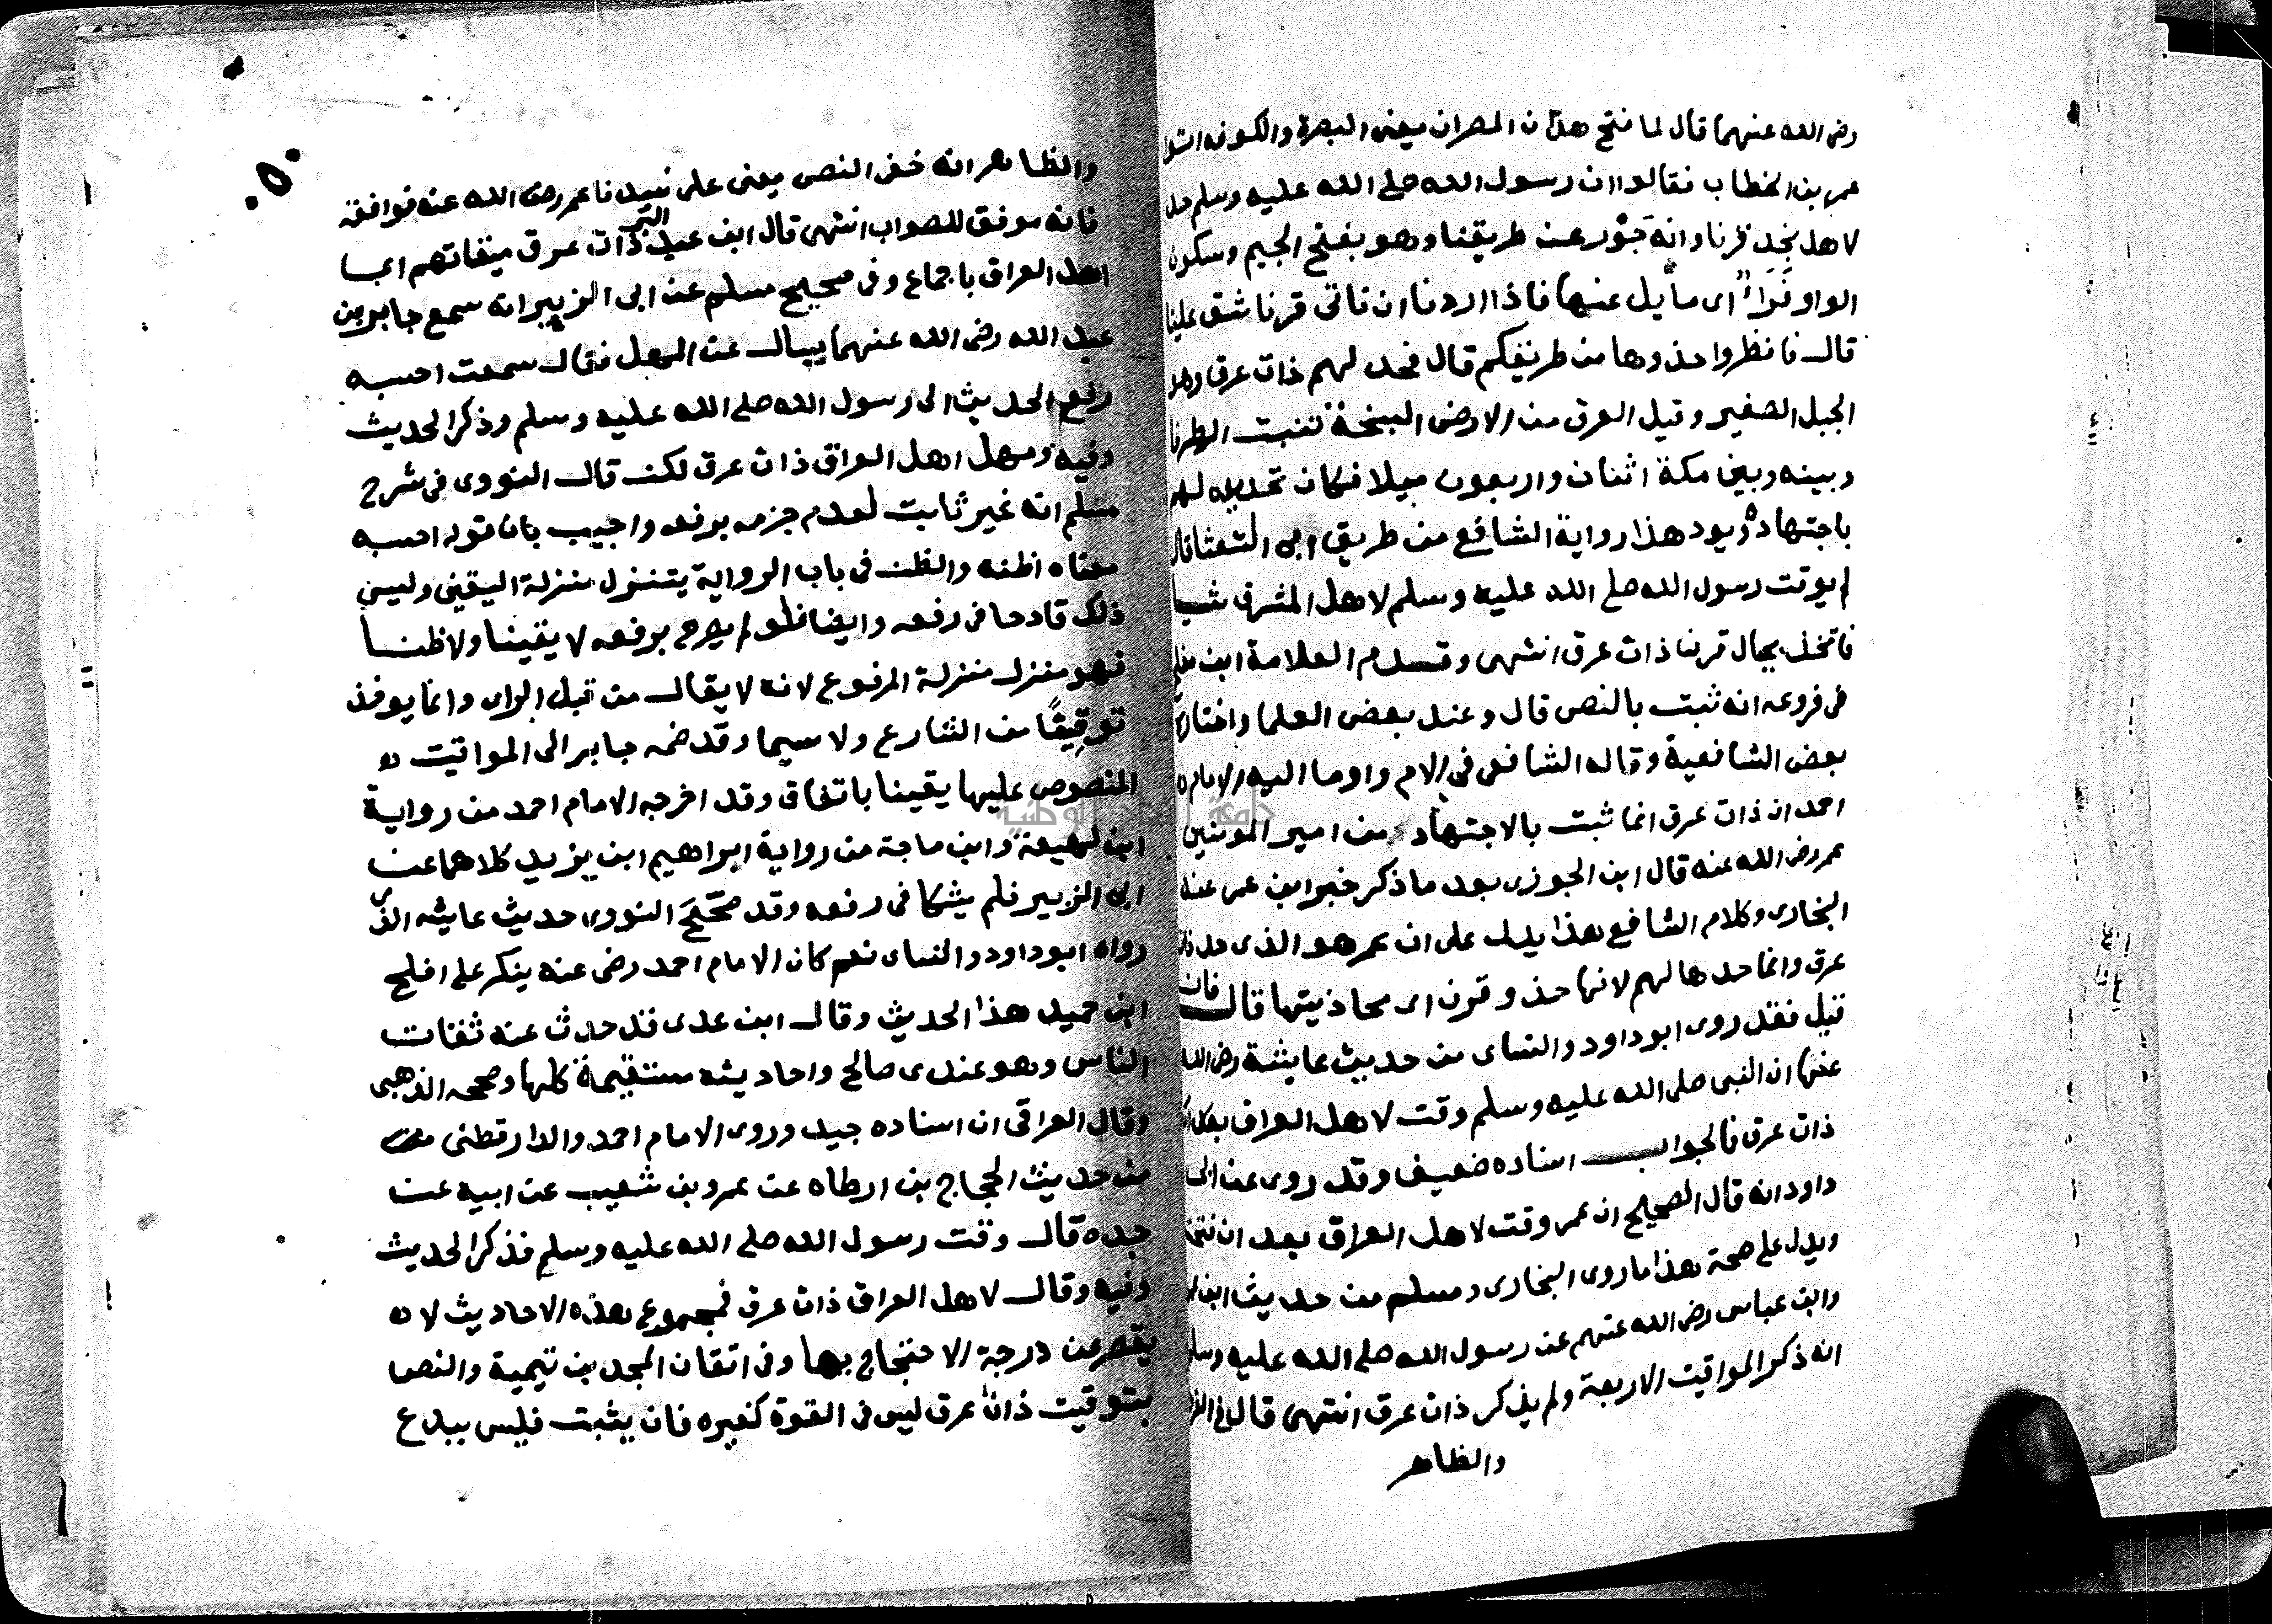 رضى الله عنهما قال لما فتح هذان المصران يعنى البصرة والكوفه اتوا
عمر بن الخطاب فقالوا ان رسول الله صلى الله عليه وسلم حد
لاهل نجد قرنا وانه جَوْر عن طريقنا وهو بفتح الجيم وسكون
الواو فَرَاءٌ اى مايل عنها فاذا اردنا ان ناتى قرنا شق علينا
قال فانظروا حذوها من طريقكم قال فحد لهم ذات عرق وهو
الجبل الصغير وقيل العرق من الارض السبخة تنبت الطرفا
وبينه وبين مكة اثنان واربعون ميلا فكان تحديده لهم
باجتهاده ويود هذا رواية الشافع من طريق ابى الشعثا قال
لم يوقت رسول الله صلى الله عليه وسلم لاهل المشرق شيا
فاتخذ بحال قرنا ذات عرق انتهى وقدم العلامة ابن مفلح
فى فروعه انه ثبت بالنص قال وعند بعض العلما واختاره
بعض الشافعية وقاله الشافعى فى الام واوما اليه الامام
احمد ان ذات عرق انما ثبت بالاجتهاد من امير المومنين
عمر رضى الله عنه قال ابن الجوزى بعد ما ذكر خبر ابن عمر عند
البخارى وكلام الشافع هذا يدل على ان عمر هو الذى حد ذات
عرق وانما حدها لهم لانها حذو قرن اى محاذيتها قال فان
قيل فقد روى ابوداود والنساى من حديث عايشة رضى الله
عنها ان النبى صلى الله عليه وسلم وقت لاهل العراق
ذات عرق فالجواب اسناده ضعيف وقد روى عن ابى
داود انه قال الصحيح ان عمر وقت لاهل العراق بعد ان فتحت
ويدل على صحة هذا ما روى البخارى ومسلم من حديث ابن
وابن عباس رضى الله عنهم عن رسول الله صلى الله عليه وسلم
انه ذكر المواقيت الاربعة ولم يذكر ذات عرق انتهى قال فى
والظاهر
٥٠
والظاهر انه خفى النص يعنى على سيدنا عمر رضى الله عنه فوافقه
فانه موفق للصواب انتهى قال ابن عبد البر ذات عرق ميقاتهم اى
اهل العراق باجماع وفى صحيح مسلم عن ابى الزبير انه سمع جابر بن
عبد الله رضى الله عنهما يسال عن المهل فقال سمعت احسبه
رفع الحديث الى رسول الله صلى الله عليه وسلم وذكر الحديث
وفيه ومهل اهل العراق ذات عرق لكن قال النووى فى شرح
مسلم انه غير ثابت لعدم جزمه برفعه واجيب بان قوله احسبه
معناه اظنه والظن فى باب الرواية يتنزل منزلة اليقين وليس
ذلك قادحا فى رفعه وايضا فلو لم يصرح برفعه لا يقينا ولا ظنا
فهو منزل منزلة المرفوع لانه لا يقال من قبل الراى وانما يوخذ
توقيفًا من الشارع ولا سيما وقد ضمه جابر الى المواقيت
المنصوص عليها يقينا باتفاق وقد اخرجه الامام احمد من رواية
ابن لهيعة وابن ماجة من رواية ابراهيم ابن يزيد كلاهما عن
ابى الزبير فلم يشكا فى رفعه وقد صَحَّحَ النووى حديث عايشه الذى
رواه ابوداود والنساى نعم كان الامام احمد رضى عنه ينكر على افلح
ابن حميد هذا الحديث وقال ابن عدى قد حدث عنه ثقات
الناس وهو عندى صالح واحاديثه مستقيمة كلها وصححه الذهبى
وقال العراقى ان اسناده جيد وروى الامام احمد والدارقطنى
من حديث الحجاج بن ارطاه عن عمرو بن شعيب عن ابيه عن
جده قال وقت رسول الله صلى الله عليه وسلم فذكر الحديث
وفيه وقال لاهل العراق ذات عرق فمجموع هذه الاحاديث لا
يقصر عن درجة الاحتجاج بها وفى اتقان المجد بن تيمية والنص
بتوقيت ذات عرق ليس فى القوة كغيره فان يثبت فليس ببدع
جامعة النجاح الوطنية